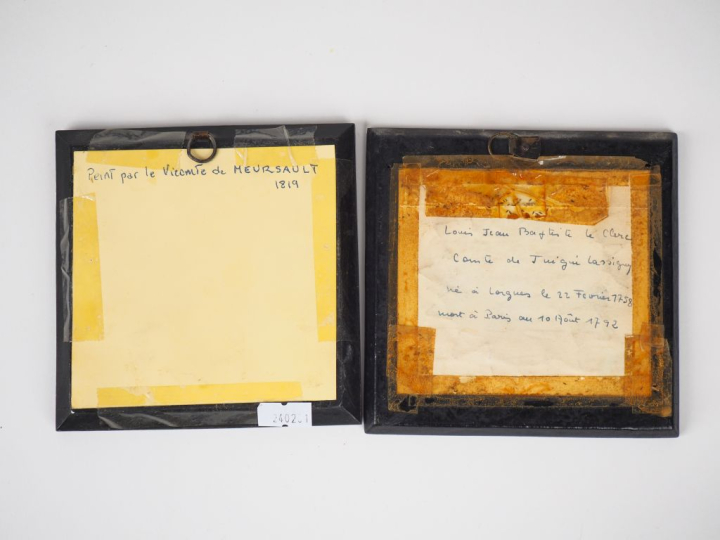 Peint par le Vicomte de MEURSAULT
1819
2402.1
Louis Jean Baptiste le Clerc
Comte de Juigné Lassigny
né à Lorgues le 22 Fevrier 1758
mort à Paris au 10 Août 1792